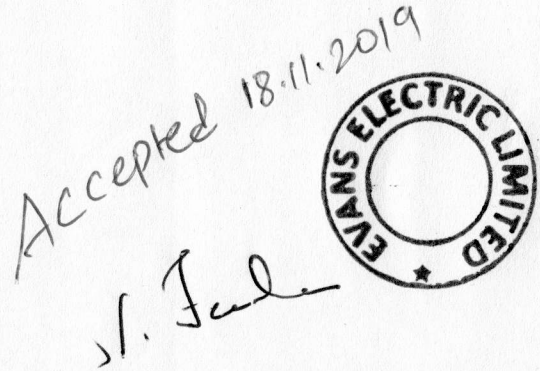 Accepted 18.11.2019
EVANS ELECTRIC LIMITED ★
N.